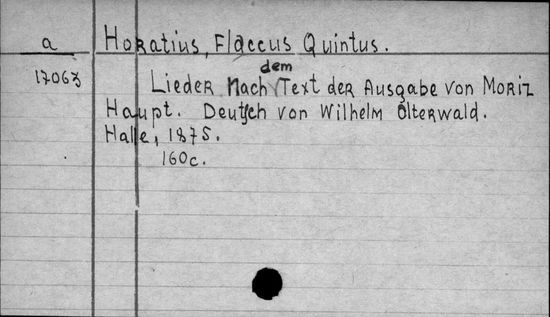 a
Horatius, Flaccus Quintus.
17063
Lieder nach dem Text der Ausgabe von Moriz
Haupt. Deutsch von Wilhelm Olterwald.
Halle, 1875.
160c.